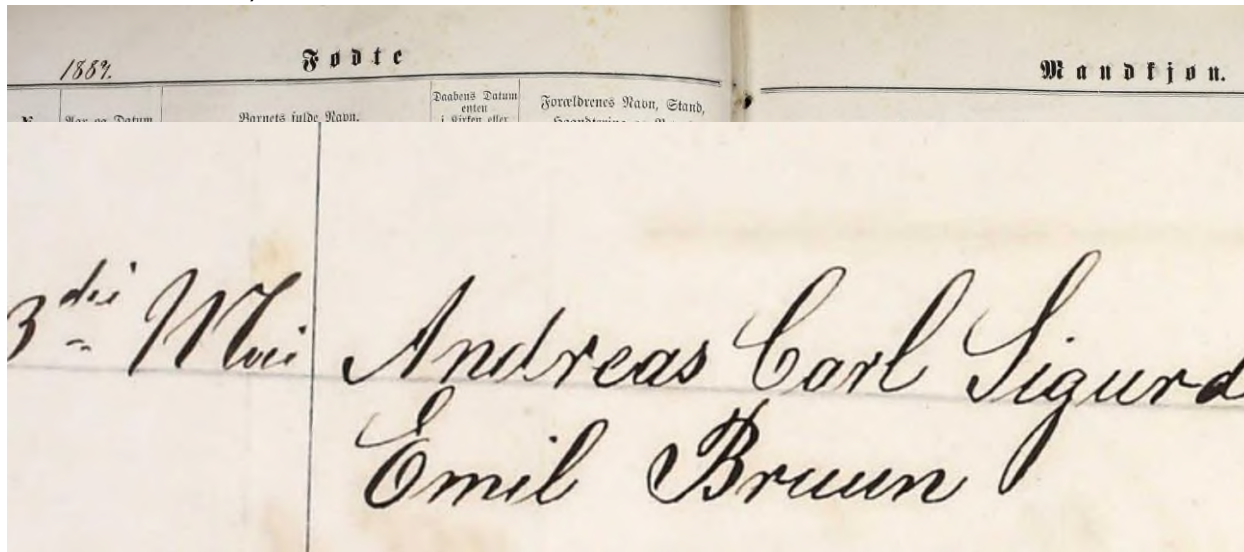 1887.
Fødte
Mandkjøn.
Aar og Datum
Barnets fulde Navn.
Daabens Datum
enten
i Kirken eller
Forældrenes Navn, Stand,
3die Mai
Andreas Carl Sigurd
Emil Bruun